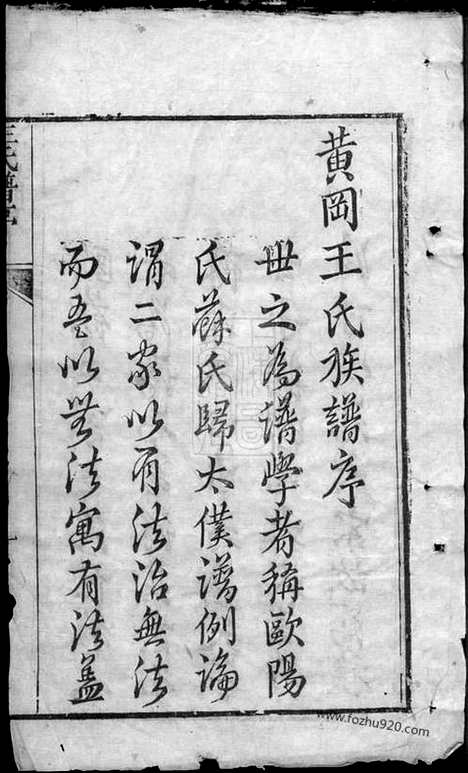 黄岡王氏族譜序
世之為譜學者稱歐陽
氏蘇氏歸太僕譜例論
謂二家以有法治無法
而吾以無法寓有法蓋
王氏譜序
www.fozhu920.com